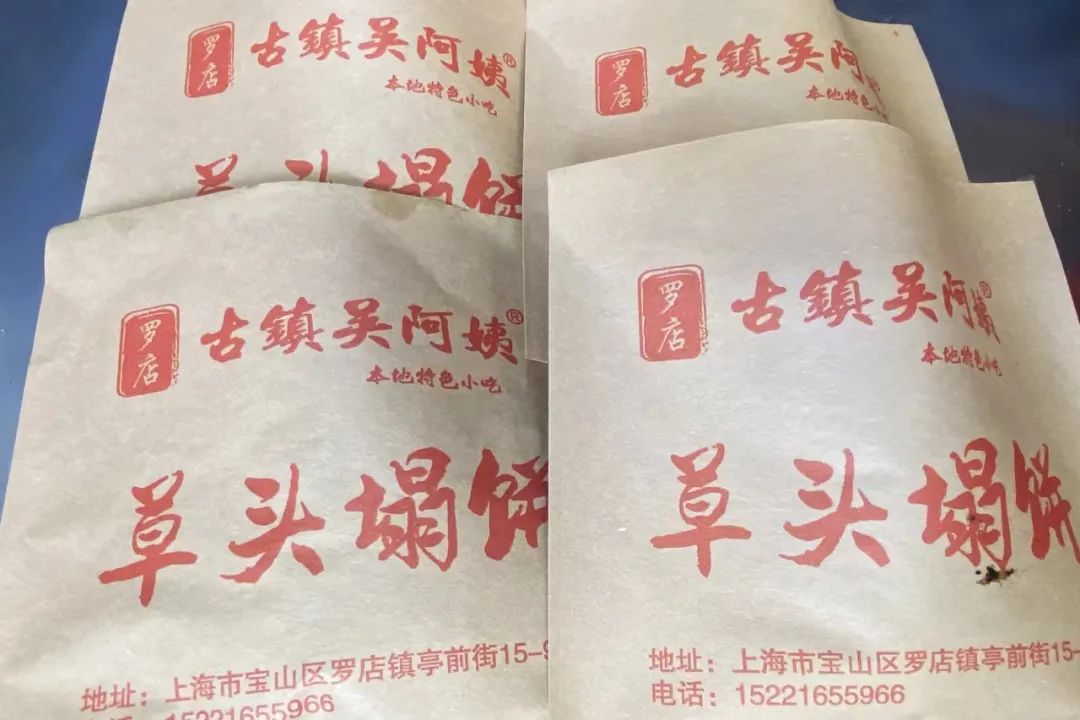 罗店
古鎮吴阿姨®
本地特色小吃
草头塌饼
罗店
古鎮吴阿姨
本地特色小吃
罗店
古鎮吴阿姨®
本地特色小吃
草头塌饼
地址：上海市宝山区罗店镇亭前街15-9
电话：15221655966
罗店
古鎮吴阿姨®
本地特色小吃
草头塌饼
地址：上海市宝山区罗店镇亭前街15-
电话：15221655966